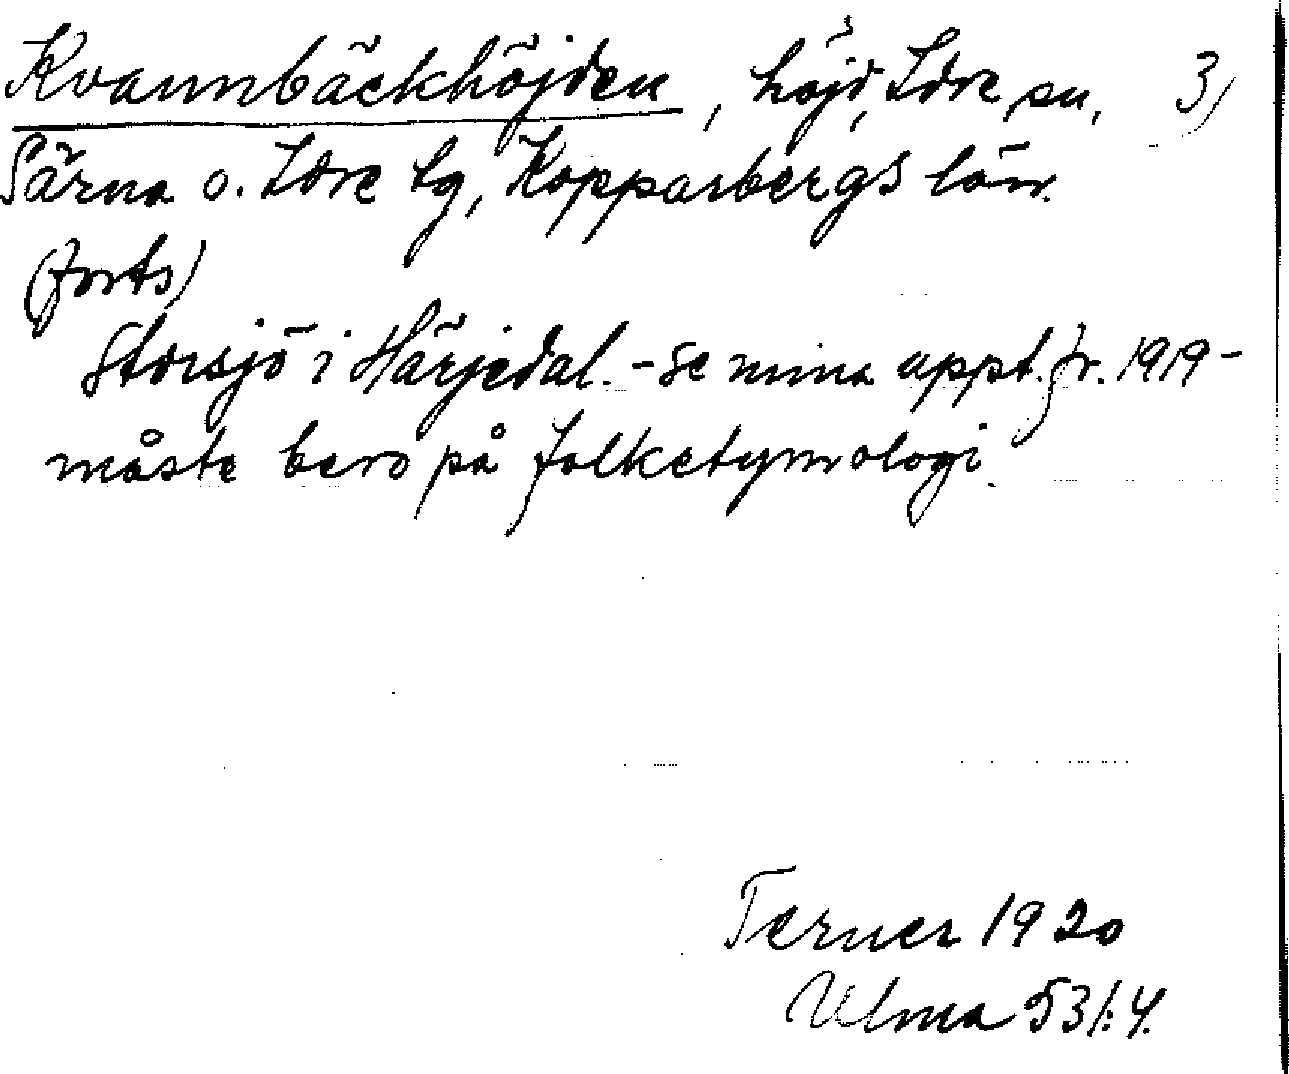 Kvannbäckhöjden, höjd, Idre sn, 3)
Särna o. Idre tg, Kopparbergs län.
(forts)
Storsjö i Härjedal. - se mina uppt. fr. 1919 -
måste bero på folketymologi.
Terner 1920
Ulma 531:4.